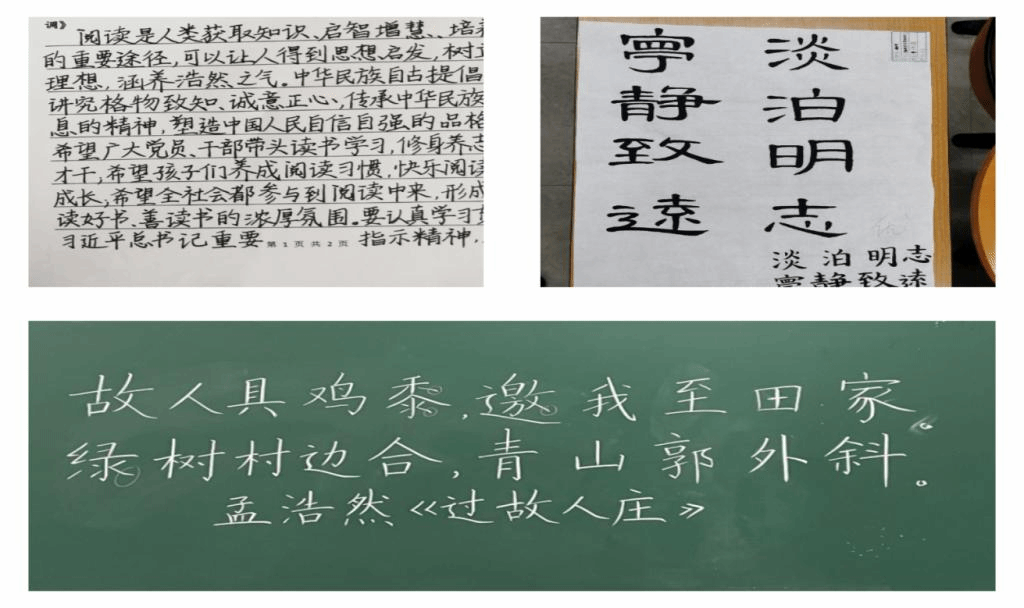 词》
阅读是人类获取知识、启智增慧、培养
的重要途径,可以让人得到思想启发,树立
理想,涵养浩然之气。中华民族自古提倡
讲究格物致知、诚意正心,传承中华民族
息的精神,塑造中国人民自信自强的品格
希望广大党员、干部带头读书学习,修身养志
才干,希望孩子们养成阅读习惯,快乐阅读
成长,希望全社会都参与到阅读中来,形成
读好书、善读书的浓厚氛围。要认真学习贯
习近平总书记重要 第 1 页 共 2 页 指示精神,
淡泊明志
宁静致远
淡泊明志
宁静致远
故人具鸡黍,邀我至田家。
绿树村边合,青山郭外斜。
孟浩然《过故人庄》